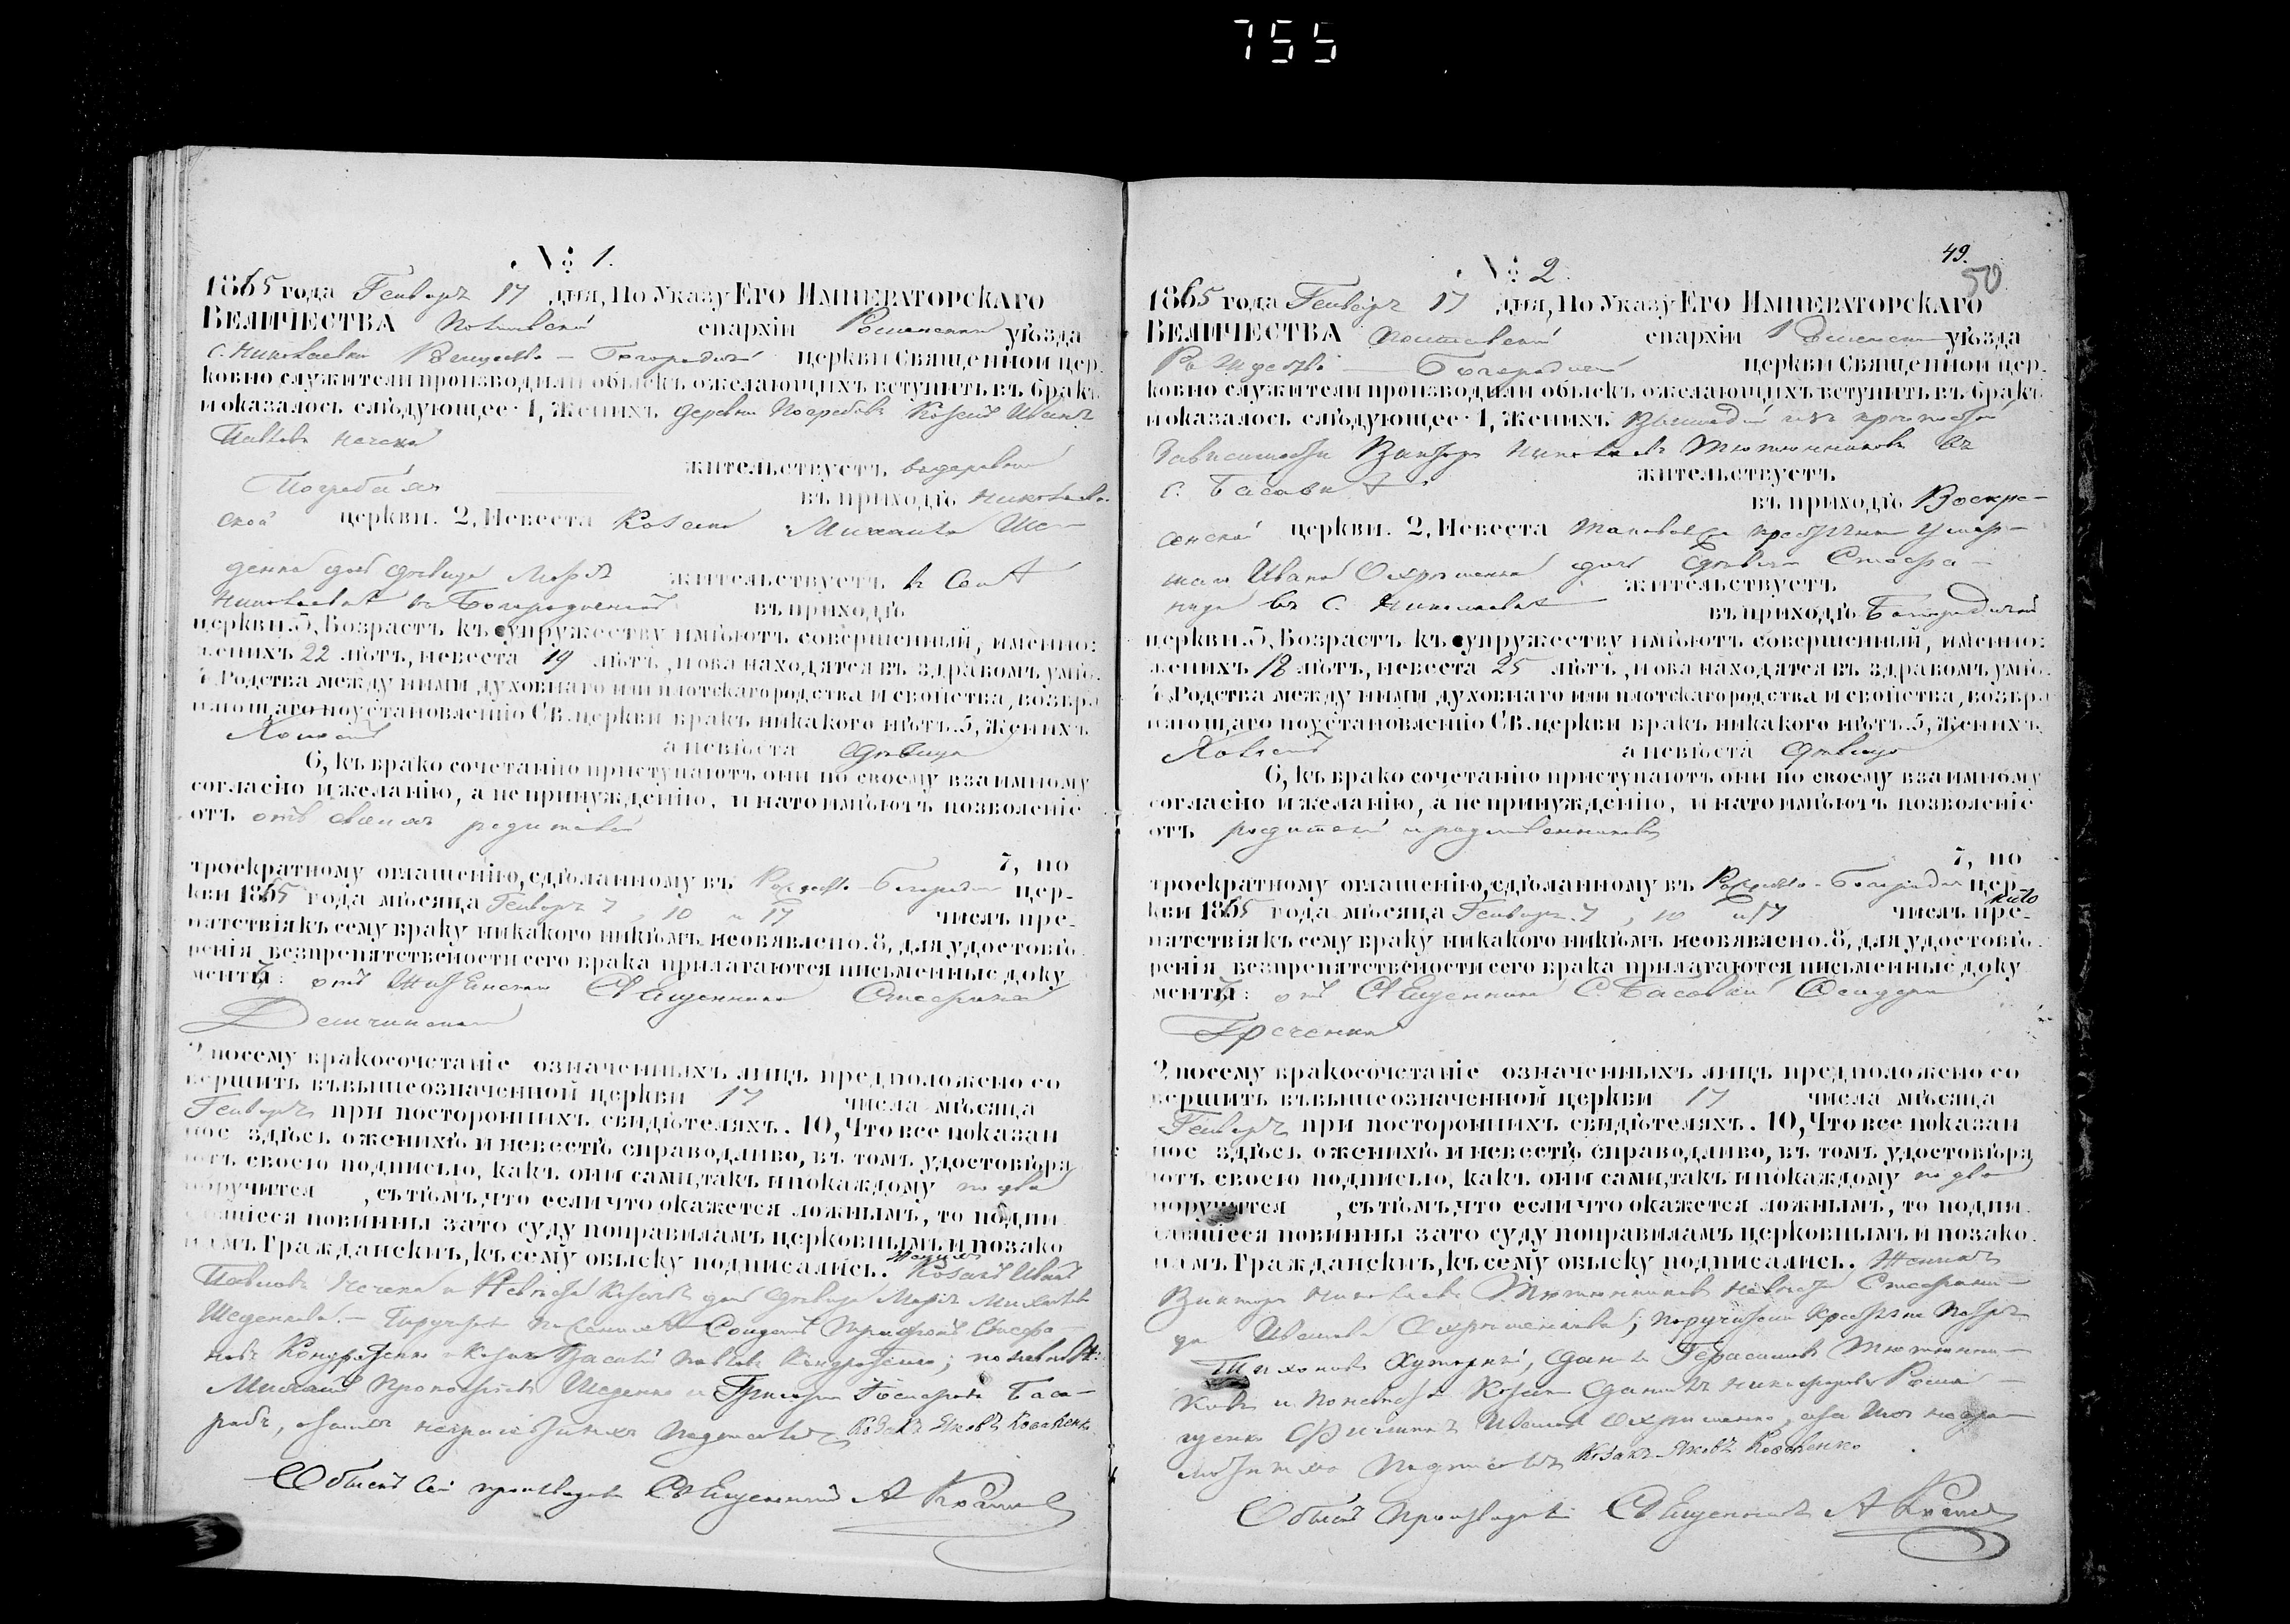 755
№ 1.
1865 года Генваря 17 дня, По Указу ЕГО ИМПЕРАТОРСКАГО
ВЕЛИЧЕСТВА Полтавской епархіи Роменскаго уѣзда
с. Николаевки Рождество-Богородичной церкви Священной цер-
ковно служители производили обыскъ о желающихъ вступить въ бракъ
и оказалось слѣдующее: 1, Женихъ деревни Погребовъ Козакъ Иванъ
Павловъ
жительствуетъ въ деревни
Погребахъ въ приходѣ Николаев-
ской церкви. 2, Невеста Козака Михаила Ше-
денка дочь дѣвица Марія жительствуетъ в селѣ
Николаевкѣ въ Богородичной въ приходѣ
церкви. 3, Возрастъ къ супружеству имѣютъ совершенный, именно:
женихъ 22 лѣтъ, невеста 19 лѣтъ, и оба находятся въ здравомъ умѣ.
4 Родства между ними духовнаго или плотскаго родства и свойства, возбра
няющаго по установленію СВ. церкви бракъ никакого нѣтъ. 5, Женихъ
Холостъ а невѣста дѣвица
6, къ брако сочетанію приступаютъ они по своему взаимному
согласію и желанію, а не принужденію, и на то имѣютъ позволеніе
отъ отъ своихъ родителей
7, по
троекратному оглашенію, сдѣланному въ Рождество-Богородич цер-
кви 1865 года мѣсяца Генваря 7, 10 и 17 числъ пре-
пятствія къ сему браку никакого никѣмъ необявлено. 8, для удостовѣ-
ренія безпрепятствености сего брака прилагаются письменные доку
менты: отъ Священника Стефана
2 посему бракосочетаніе означенныхъ лицъ предположено со
вершить въ вышеозначенной церкви 17 числа мѣсяца
Генваря при постороннихъ свидѣтеляхъ. 10, Что все показан
ное здѣсь о женихѣ и невестѣ справодливо, въ томъ удостовѣря
ютъ своею подписью, какъ они сами, такъ и по каждому по два
поручится, съ тѣмъ, что если что окажется ложнымъ, то подпи
савшіеся повинны за то суду по правиламъ церковнымъ и по зако
намъ Гражданскитъ, къ сему обыску подписались. Женихъ Козакъ Иванъ
Павловъ и Невеста Козачка дочь дѣвица Марія Михайлова
Шеденкова.- Поручители по женихѣ Солдатъ Трифонъ Стефа-
новъ Кондратенко и Козакъ Василій Павловъ Кондратенко; по невѣстѣ:
Михаилъ Прокофіевъ Шеденко и Григорій
а за нихъ неграмотныхъ Подписался Козакъ Яковъ Коваленко
Обыскъ сей производилъ Священникъ А
49.
50
№ 2.
1865 года Генваря 17 дня, По Указу ЕГО ИМПЕРАТОРСКАГО
ВЕЛИЧЕСТВА Полтавской епархіи Роменскаго уѣзда
Рождество - Богородичной церкви Священной цер-
ковно служители производили обыскъ о желающихъ вступить въ бракъ
и оказалось слѣдующее: 1, Женихъ Вышедшій изъ крѣпостной
зависимости Викторъ Николаевъ Тютюнниковъ въ
с. Басовкѣ жительствуетъ
въ приходѣ Воскре-
сенской церкви. 2, Невеста
Ивана Охрыменка дочь дѣвица Стефа-
нида въ с. Николаевкѣ жительствуетъ
въ приходѣ Богородичной
церкви. 3, Возрастъ къ супружеству имѣютъ совершенный, именно:
женихъ 18 лѣтъ, невеста 25 лѣтъ, и оба находятся въ здравомъ умѣ.
4 Родства между ними духовнаго или плотскаго родства и свойства, возбра
няющаго по установленію СВ. церкви бракъ никакого нѣтъ. 5, Женихъ
Холостъ а невѣста дѣвица
6, къ брако сочетанію приступаютъ они по своему взаимному
согласію и желанію, а не принужденію, и на то имѣютъ позволеніе
отъ родителей и родственниковъ
7, по
троекратному оглашенію, сдѣланному въ Рождество-Богородич цер-
кви 1865 года мѣсяца Генваря 7, 10 и 17 числъ пре-
пятствія къ сему браку никакого никѣмъ необявлено. 8, для удостовѣ-
ренія безпрепятствености сего брака прилагаются письменные доку
менты: отъ Священника С. Басовки
Греченка
2 посему бракосочетаніе означенныхъ лицъ предположено со
вершить въ вышеозначенной церкви 17 числа мѣсяца
Генваря при постороннихъ свидѣтеляхъ. 10, Что все показан
ное здѣсь о женихѣ и невестѣ справодливо, въ томъ удостовѣря
ютъ своею подписью, какъ они сами, такъ и по каждому по два
поручится, съ тѣмъ, что если что окажется ложнымъ, то подпи
савшіеся повинны за то суду по правиламъ церковнымъ и по зако
намъ Гражданскитъ, къ сему обыску подписались. Женихъ
Викторъ Николаевъ Тютюнниковъ Невеста Стефани-
да Иванова Охрыменкова; поручители
Тихоновъ Данило Герасимовъ Тютюнни-
ковъ и по невѣстѣ Козаки Данило Никифоровъ
Иванъ Охрыменко, а за нихъ неgra-
мотныхъ Подписался Козакъ Яковъ Коваленко
Обыскъ производилъ Священникъ А